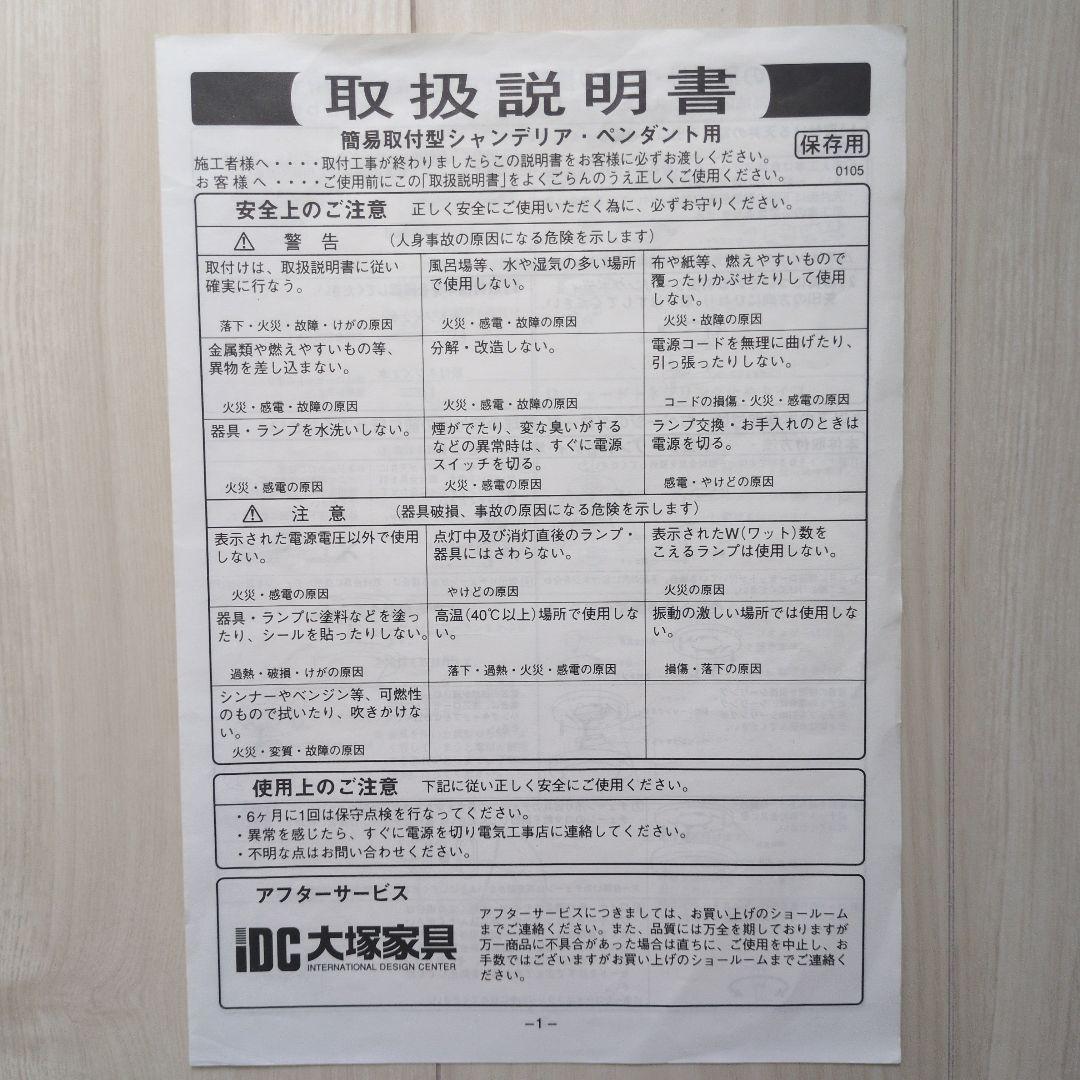 取扱説明書
簡易取付型シャンデリア・ペンダント用
保存用
施工者様へ・・・・取付工事が終わりましたらこの説明書をお客様に必ずお渡しください。
お客様へ・・・・ご使用前にこの「取扱説明書」をよくごらんのうえ正しくご使用ください。
0105
安全上のご注意 正しく安全にご使用いただく為に、必ずお守りください。
⚠ 警告 (人身事故の原因になる危険を示します)
取付けは、取扱説明書に従い
確実に行なう。
落下・火災・故障・けがの原因
風呂場等、水や湿気の多い場所
で使用しない。
火災・感電・故障の原因
布や紙等、燃えやすいもので
覆ったりかぶせたりして使用
しない。
火災・故障の原因
金属類や燃えやすいもの等、
異物を差し込まない。
火災・感電・故障の原因
分解・改造しない。
火災・感電・故障の原因
電源コードを無理に曲げたり、
引っ張ったりしない。
コードの損傷・火災・感電の原因
器具・ランプを水洗いしない。
火災・感電の原因
煙がでたり、変な臭いがする
などの異常時は、すぐに電源
スイッチを切る。
火災・感電の原因
ランプ交換・お手入れのときは
電源を切る。
感電・やけどの原因
⚠ 注意 (器具破損、事故の原因になる危険を示します)
表示された電源電圧以外で使用
しない。
火災・感電の原因
点灯中及び消灯直後のランプ・
器具にはさわらない。
やけどの原因
表示されたW(ワット)数を
こえるランプは使用しない。
火災の原因
器具・ランプに塗料などを塗っ
たり、シールを貼ったりしない。
過熱・破損・けがの原因
高温(40℃以上)場所で使用しな
い。
落下・過熱・火災・感電の原因
振動の激しい場所では使用しな
い。
損傷・落下の原因
シンナーやベンジン等、可燃性
のもので拭いたり、吹きかけな
い。
火災・変質・故障の原因
使用上のご注意 下記に従い正しく安全にご使用ください。
・6ヶ月に1回は保守点検を行なってください。
・異常を感じたら、すぐに電源を切り電気工事店に連絡してください。
・不明な点はお問い合わせください。
アフターサービス
IDC 大塚家具
INTERNATIONAL DESIGN CENTER
アフターサービスにつきましては、お買い上げのショールーム
までご連絡ください。また、品質には万全を期しておりますが
万一商品に不具合があった場合は直ちに、ご使用を中止し、お
手数ではございますがお買い上げのショールームまでご連絡く
ださい。
−1−